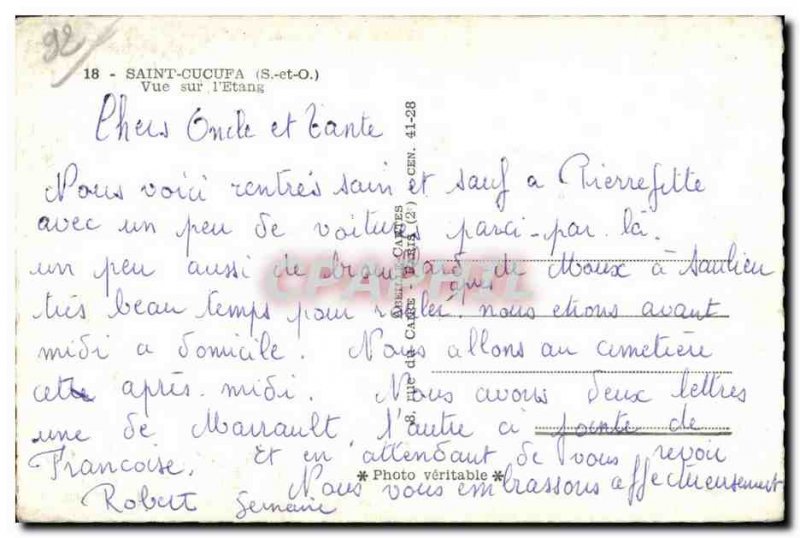 92
18 - SAINT-CUCUFA (S.-et-O.)
Vue sur l'Etang
Chers Oncle et Tante
Nous voici rentrés sain et sauf a Pierrefitte
avec un peu de voitures parci-par là.
un peu aussi de brouillard que de Moux à Saulieu
très beau temps pour rouler. nous etions avant
midi a domicile. Nous allons au cimetière
cette après-midi. Nous avons deux lettres
une de Marrault l'autre a pointe de
Francoise. Et en attendant de vous revoir
Nous vous embrassons affectueusement
Robert Germaine
ABEILLE CARTES
8, rue du Caire - PARIS (2e) - CEN. 41-28
* Photo véritable *
CPAPHIL